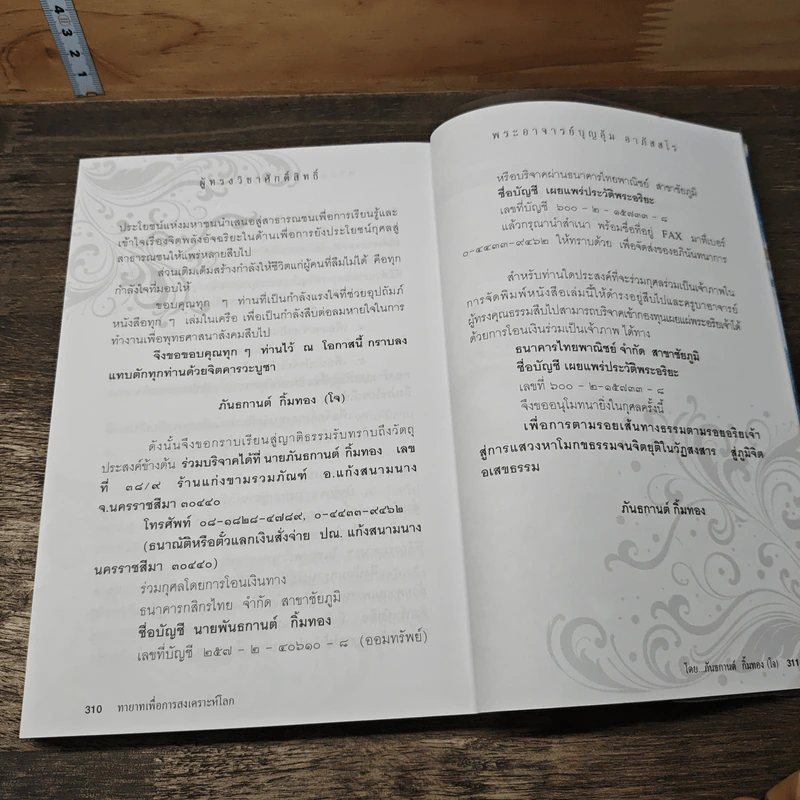 4
3
2
1
ผู้ทรงวิชาศักดิ์สิทธิ์
ประโยชน์แห่งมหาชนนำเสนอสู่สาธารณชนเพื่อการเรียนรู้และ
เข้าใจเรื่องจิตพลังอัจฉริยะในด้านเพื่อการยังประโยชน์กุศลสู่
สาธารณชนให้แพร่หลายสืบไป
ส่วนเติมเต็มสร้างกำลังให้ชีวิตแก่ผู้คนที่ลืมไม่ได้ คือทุก
กำลังใจที่มอบให้
ขอบคุณทุก ๆ ท่านที่เป็นกำลังแรงใจที่ช่วยอุปถัมภ์
หนังสือทุก ๆ เล่มในเครือ เพื่อเป็นกำลังสืบต่อลมหายใจในการ
ทำงานเพื่อพุทธศาสนาสังคมสืบไป
จึงขอขอบคุณทุก ๆ ท่านไว้ ณ โอกาสนี้ กราบลง
แทบตักทุกท่านด้วยจิตคารวะบูชา
ภันธกานต์ กิ้มทอง (โจ)
ดังนั้นจึงขอกราบเรียนสู่ญาติธรรมรับทราบถึงวัตถุ
ประสงค์ข้างต้น ร่วมบริจาคได้ที่ นายภันธกานต์ กิ้มทอง เลข
ที่ ๓๘/๙ ร้านแก่งขามรวมภัณฑ์ อ.แก้งสนามนาง
จ.นครราชสีมา ๓๐๔๔๐
โทรศัพท์ ๐๘-๑๘๒๘-๔๗๘๙, ๐-๔๔๓๓-๙๔๖๒
(ธนาณัติหรือตั๋วแลกเงินสั่งจ่าย ปณ. แก้งสนามนาง
นครราชสีมา ๓๐๔๔๐)
ร่วมกุศลโดยการโอนเงินทาง
ธนาคารกสิกรไทย จำกัด สาขาชัยภูมิ
ชื่อบัญชี นายพันธกานต์ กิ้มทอง
เลขที่บัญชี ๒๕๗ - ๒ - ๔๐๖๑๐ - ๘ (ออมทรัพย์)
310 ทายาทเพื่อการสงเคราะห์โลก
พระอาจารย์บุญคุ้ม อาภัสสโร
หรือบริจาคผ่านธนาคารไทยพาณิชย์ สาขาชัยภูมิ
ชื่อบัญชี เผยแพร่ประวัติพระอริยะ
เลขที่บัญชี ๖๐๐ - ๒ - ๑๕๗๓๓ - ๘
แล้วกรุณานำสำเนา พร้อมชื่อที่อยู่ FAX มาที่เบอร์
๐-๔๔๓๓-๙๔๖๒ ให้ทราบด้วย เพื่อจัดส่งของอภินันทนาการ
สำหรับท่านใดประสงค์ที่จะร่วมกุศลร่วมเป็นเจ้าภาพใน
การจัดพิมพ์หนังสือเล่มนี้ให้ดำรงอยู่สืบไปและครูบาอาจารย์
ผู้ทรงคุณธรรมสืบไปสามารถบริจาคเข้ากองทุนเผยแผ่พระอริยเจ้าได้
ด้วยการโอนเงินร่วมเป็นเจ้าภาพ ได้ทาง
ธนาคารไทยพาณิชย์ จำกัด สาขาชัยภูมิ
ชื่อบัญชี เผยแพร่ประวัติพระอริยะ
เลขที่ ๖๐๐ - ๒-๑๕๗๓๓ - ๘
จึงขออนุโมทนายิ่งในกุศลครั้งนี้
เพื่อการตามรอยเส้นทางธรรมตามรอยอริยเจ้า
สู่การแสวงหาโมกขธรรมจนจิตยุติในวัฏสงสาร สู่ภูมิจิต
อเสขธรรม
ภันธกานต์ กิ้มทอง
โดย ภันธกานต์ กิ้มทอง (โจ) 311